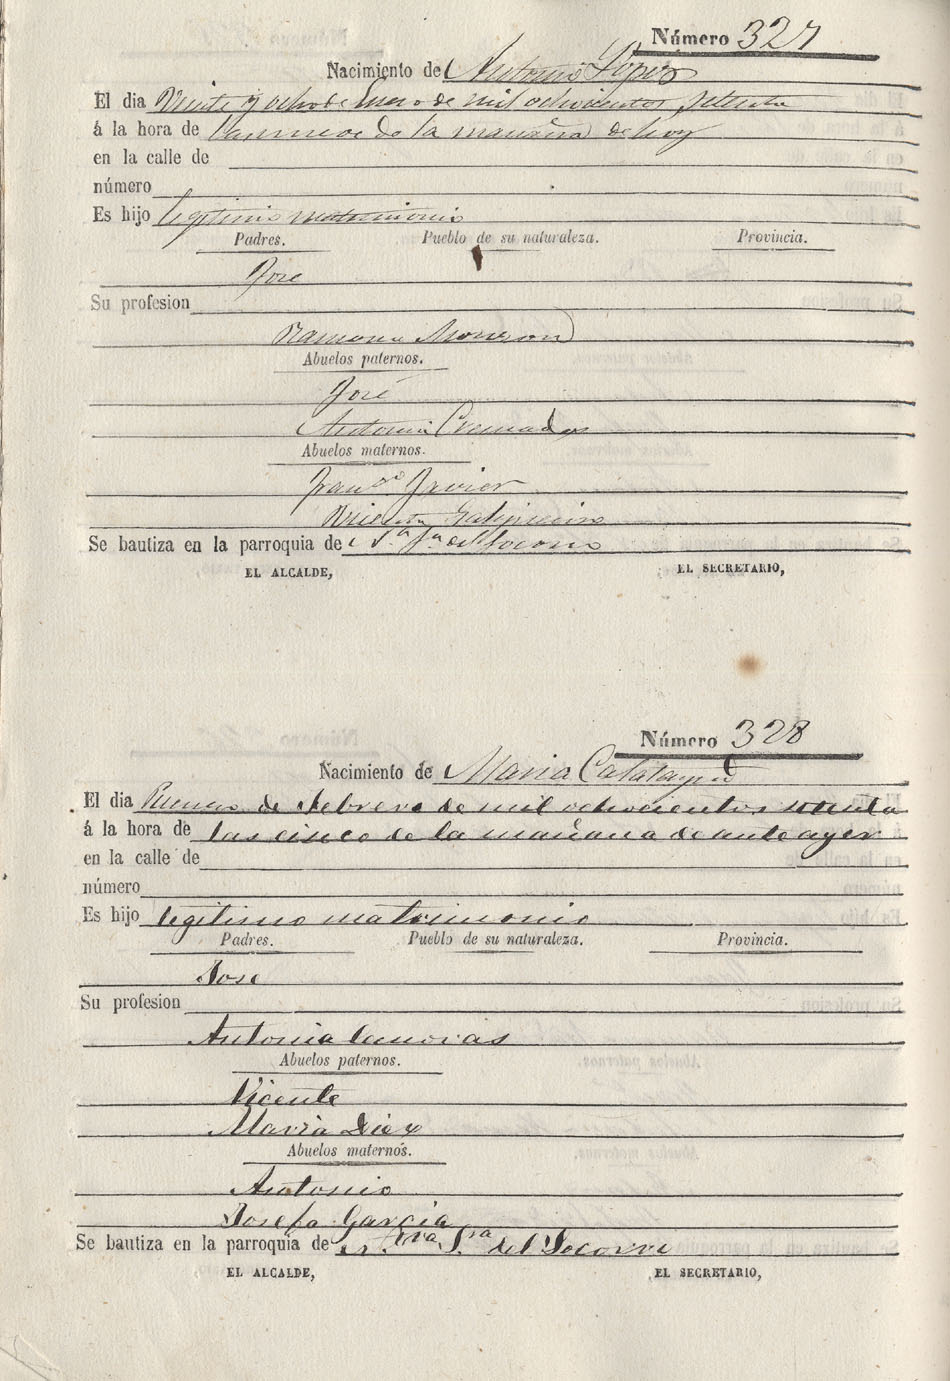 Número 327
Nacimiento de Antonio López
El dia Veinte y ocho de Enero de mil ochocientos setenta
á la hora de las nueve de la mañana de hoy
en la calle de
número
Es hijo legitimo matrimonio
Padres. Pueblo de su naturaleza. Provincia.
Jose
Su profesion
Ramona Monzon
Abuelos paternos.
José
Antonia Cremades
Abuelos maternos.
Franco Javier
Vicenta
Se bautiza en la parroquia de N. Sa. del Socorro
EL ALCALDE, EL SECRETARIO,
Número 328
Nacimiento de Maria Calatayud
El dia Primero de Febrero de mil ochocientos setenta
á la hora de las cinco de la mañana de ante ayer
en la calle de
número
Es hijo legitimo matrimonio
Padres. Pueblo de su naturaleza. Provincia.
Jose
Su profesion
Antonia Canovas
Abuelos paternos.
Vicente
Maria Diez
Abuelos maternos.
Antonio
Josefa Garcia
Se bautiza en la parroquia de Ntra. Sra. del Socorro
EL ALCALDE, EL SECRETARIO,